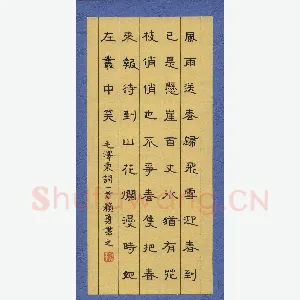 風雨送春歸飛雪迎春到
已是懸崖百丈冰猶有花
枝俏俏也不爭春隻把春
來報待到山花爛漫時她
在叢中笑
毛澤東詞一首
書之
Shufawang.CN